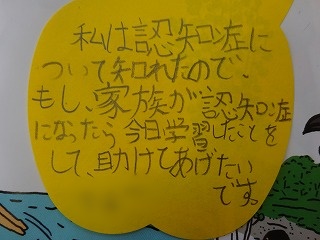 私は認知症に
ついて知れたので、
もし、家族が認知症
になったら今日学習したことを
して、助けてあげたい
です。